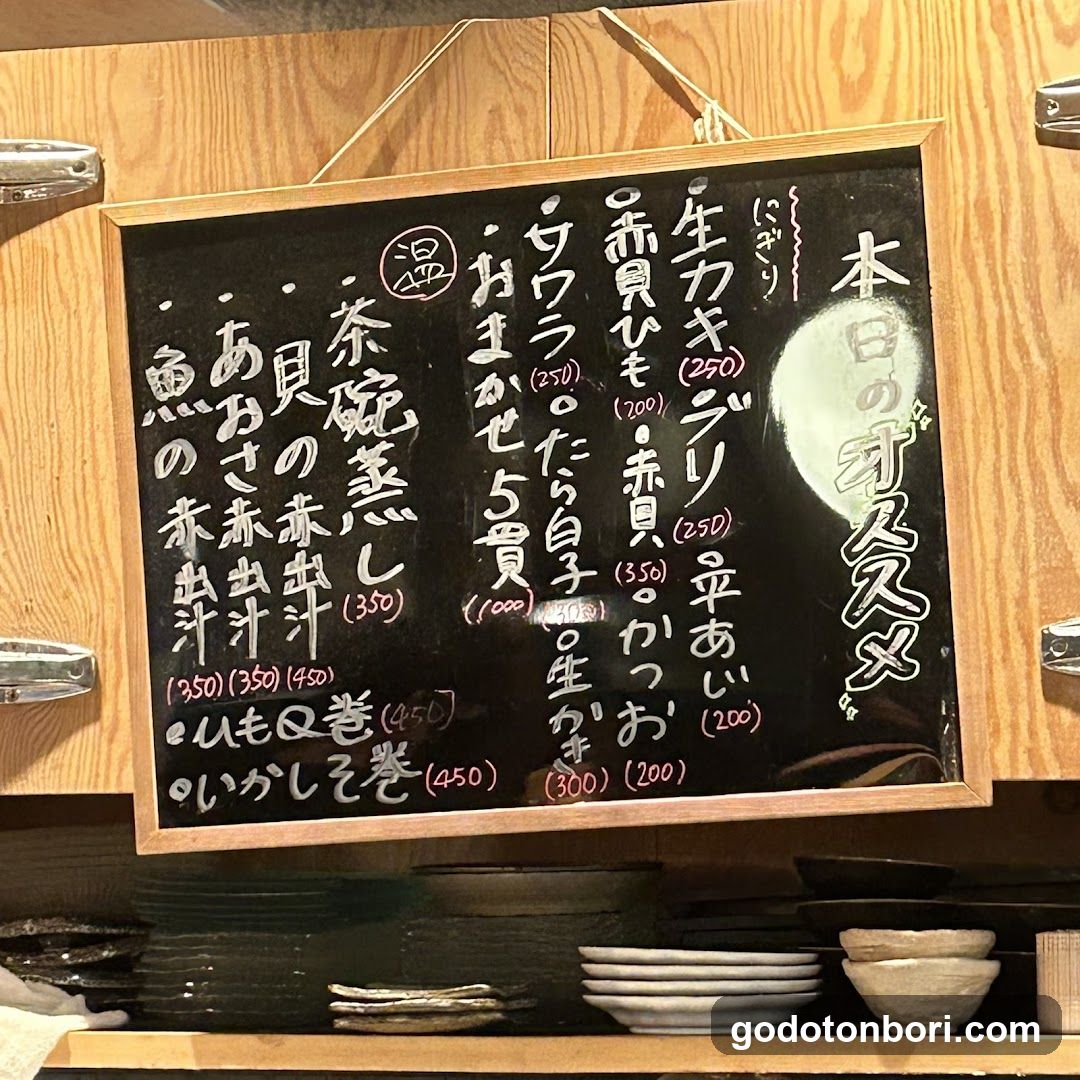 本日のオススメ
にぎり
・生カキ(250) ・ブリ(250) ・平あじ(200)
・赤貝ひも(200) ・赤貝(350) ・かつお(200)
・サワラ(250) ・たら白子 ・生かき(300)
・おまかせ5貫(1000)
温
・茶碗蒸し(350)
・貝の赤出汁(450)
・あおさ赤出汁(350)
・魚の赤出汁(350)
・ひもQ巻(450)
・いかしそ巻(450)
godotonbori.com